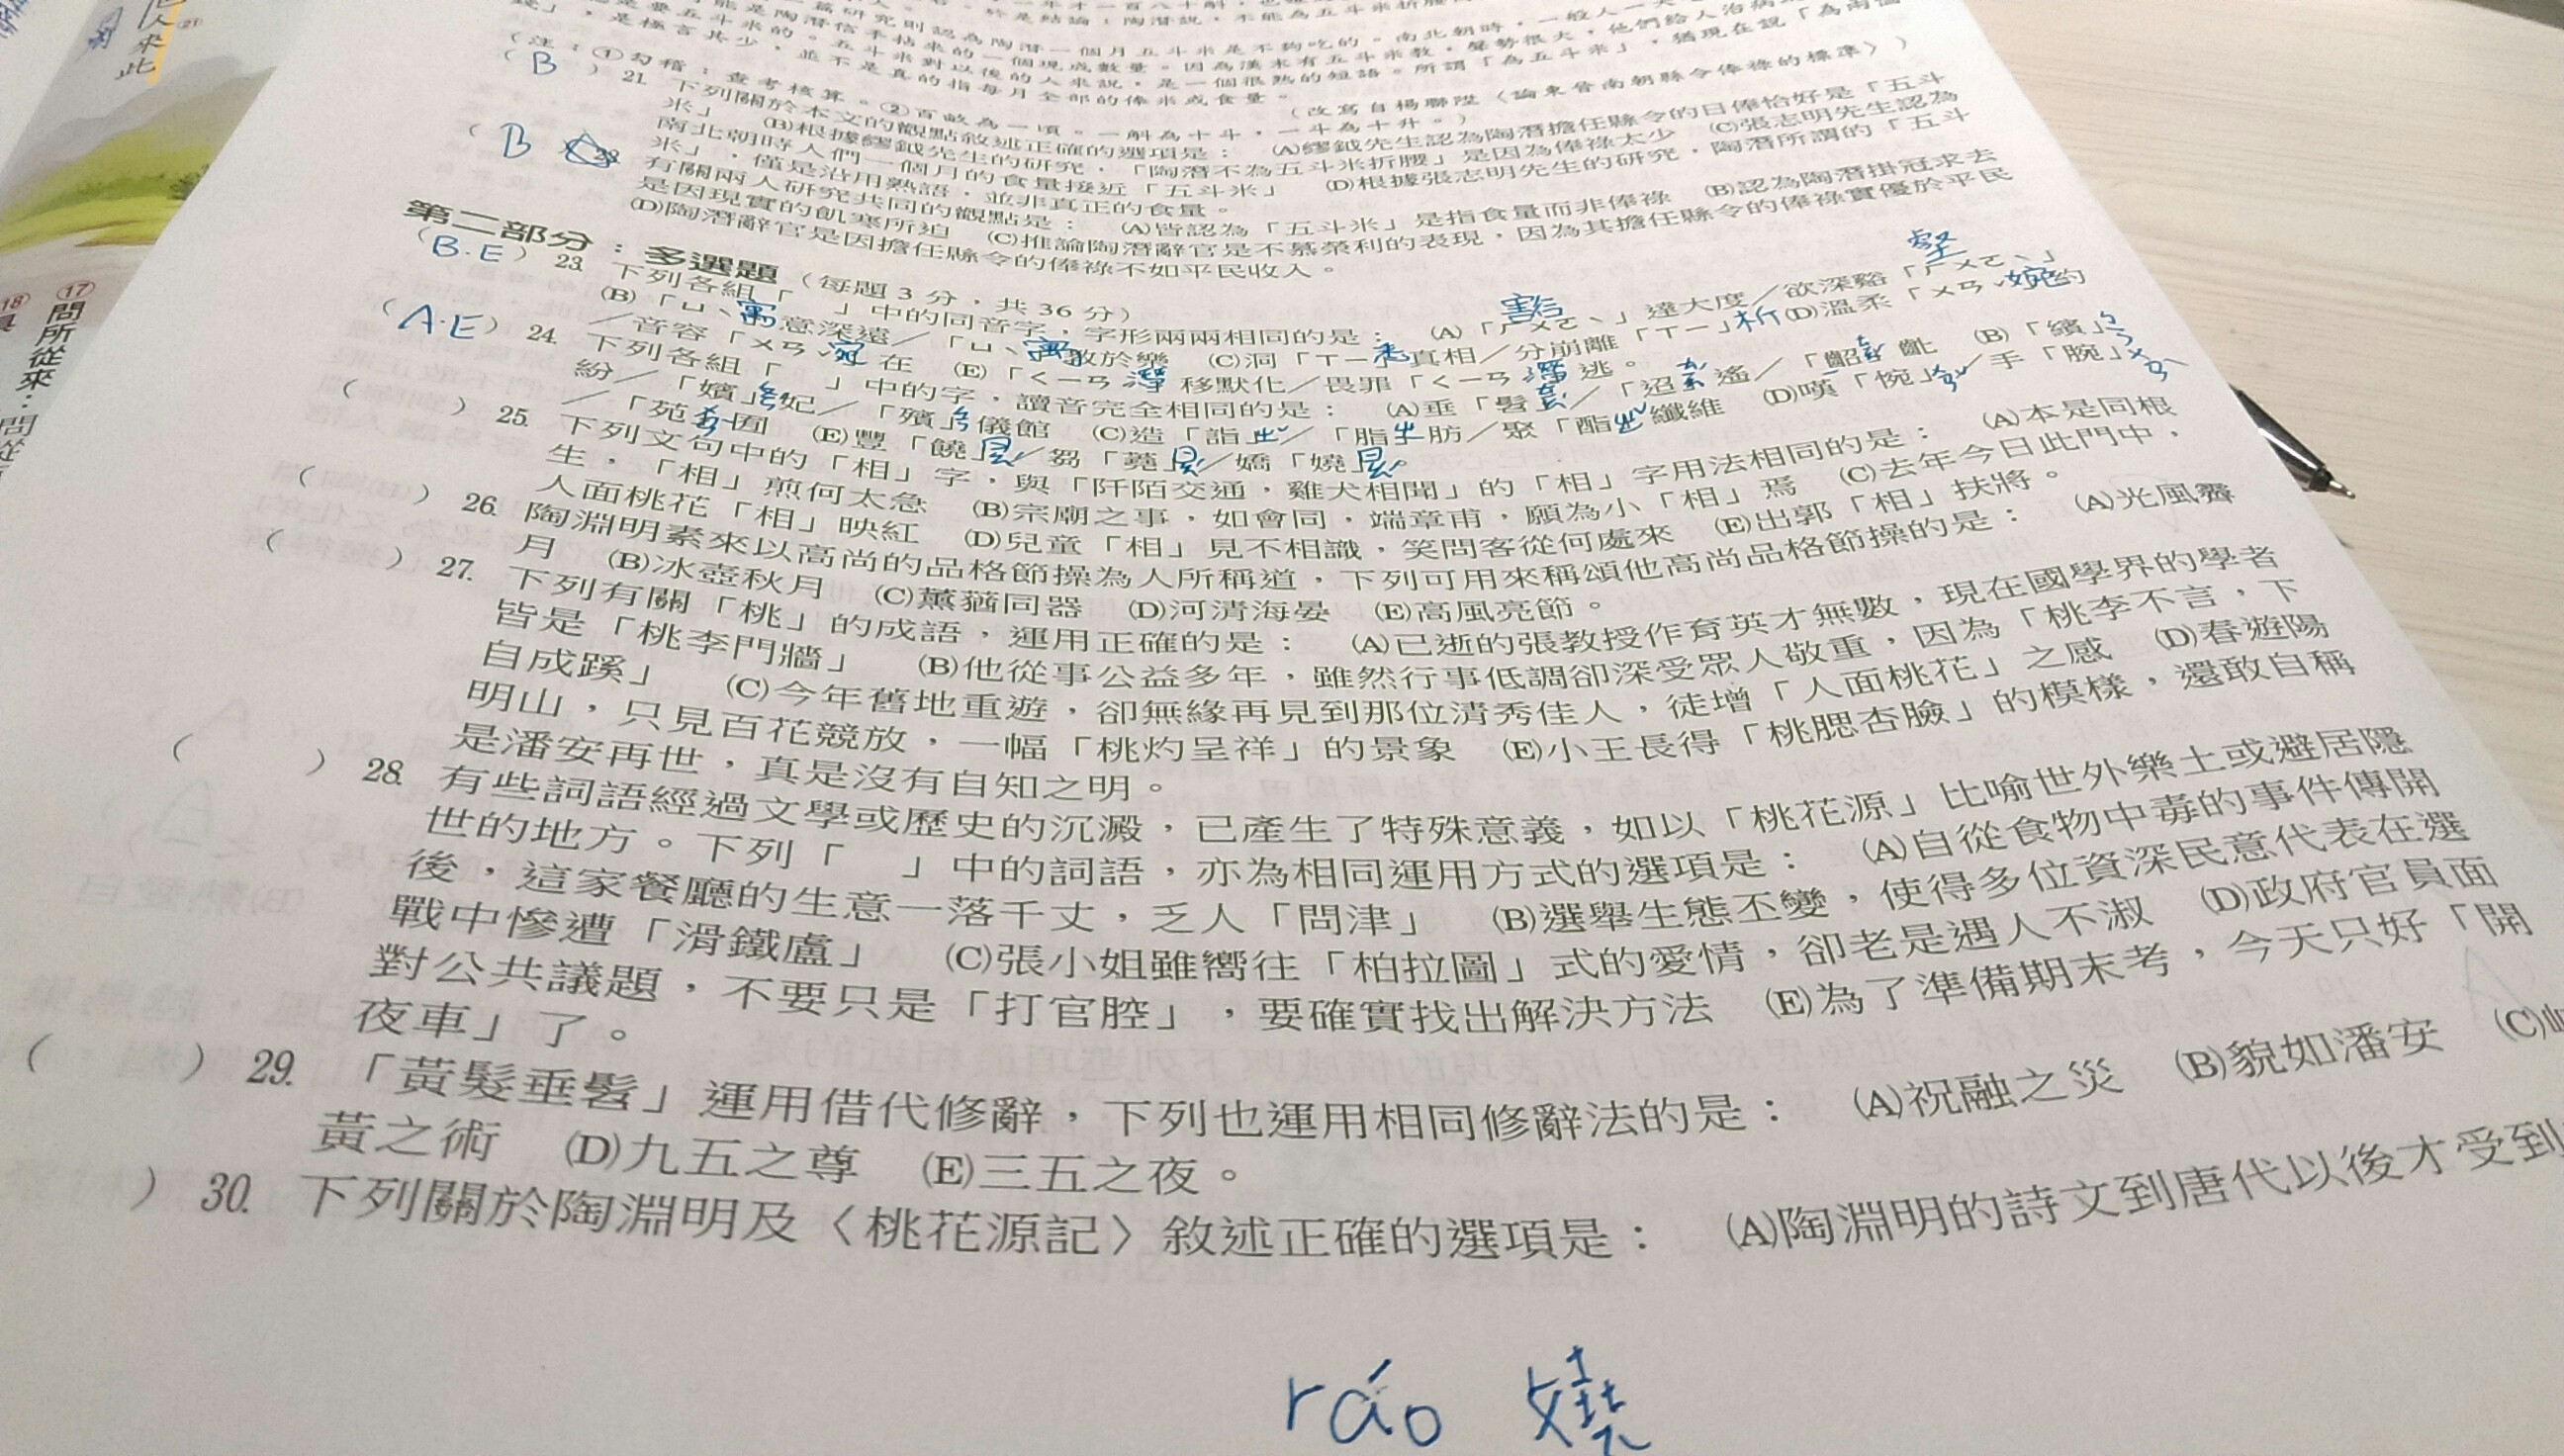 人來此
⑰問所從來：問從
一篇研究則認為陶潛一個月五斗米是不夠吃的。南北朝時，一般人一天
能是陶潛信手拈來的一個現成數量。因為漢末有五斗米教，聲勢很大，他們給人治病
是要五斗米的。五斗米對以後的人來說，是一個很熟的短語。所謂「為五斗米」，猶現在說「為兩個
錢」，是極言其少，並不是真的指每月全部的俸米或食量。
（改寫自楊聯陞〈論東晉南朝縣令俸祿的標準〉）
（注：①勾稽：查考核算。②百畝為一頃。一斛為十斗，一斗為十升。）
( B ) 21. 下列關於本文的觀點敘述正確的選項是： (A)繆鉞先生認為陶潛擔任縣令的日俸恰好是「五斗
米」 (B)根據繆鉞先生的研究，「陶潛不為五斗米折腰」是因為俸祿太少 (C)張志明先生認為
南北朝時人們一個月的食量接近「五斗米」 (D)根據張志明先生的研究，陶潛所謂的「五斗
米」，僅是沿用熟語，並非真正的食量。
( B 22. 有關兩人研究共同的觀點是： (A)皆認為「五斗米」是指食量而非俸祿 (B)認為陶潛掛冠求去
是因現實的飢寒所迫 (C)推論陶潛辭官是不慕榮利的表現，因為其擔任縣令的俸祿實優於平民
(D)陶潛辭官是因擔任縣令的俸祿不如平民收入。
第二部分：多選題（每題 3 分，共 36 分）
( B.E ) 23. 下列各組「　」中的同音字，字形兩兩相同的是： (A)「ㄏㄨㄛˋ」豁達大度／欲深谿「ㄏㄨㄛˋ」壑
(B)「ㄩˋ」寓意深遠／「ㄩˋ」寓教於樂 (C)洞「ㄒㄧ」悉真相／分崩離「ㄒㄧ」析 (D)溫柔「ㄨㄢˇ」婉約
／音容「ㄨㄢˇ」宛在 (E)「ㄑㄧㄢˊ」潛移默化／畏罪「ㄑㄧㄢˊ」潛逃。
( A.E ) 24. 下列各組「　」中的字，讀音完全相同的是： (A)垂「髫」／「迢」遙／「齠」齔 (B)「繽」
紛／「嬪」妃／「殯」儀館 (C)造「詣」／「脂」肪／聚「酯」纖維 (D)嘆「惋」／手「腕」
／「苑」囿 (E)豐「饒」／芻「蕘」／嬌「嬈」。
(　　) 25. 下列文句中的「相」字，與「阡陌交通，雞犬相聞」的「相」字用法相同的是： (A)本是同根
生，「相」煎何太急 (B)宗廟之事，如會同，端章甫，願為小「相」焉 (C)去年今日此門中，
人面桃花「相」映紅 (D)兒童「相」見不相識，笑問客從何處來 (E)出郭「相」扶將。
(　　) 26. 陶淵明素來以高尚的品格節操為人所稱道，下列可用來稱頌他高尚品格節操的是： (A)光風霽
月 (B)冰壺秋月 (C)薰蕕同器 (D)河清海晏 (E)高風亮節。
(　　) 27. 下列有關「桃」的成語，運用正確的是： (A)已逝的張教授作育英才無數，現在國學界的學者
皆是「桃李門牆」 (B)他從事公益多年，雖然行事低調卻深受眾人敬重，因為「桃李不言，下
自成蹊」 (C)今年舊地重遊，卻無緣再見到那位清秀佳人，徒增「人面桃花」之感 (D)春遊陽
明山，只見百花競放，一幅「桃灼呈祥」的景象 (E)小王長得「桃腮杏臉」的模樣，還敢自稱
是潘安再世，真是沒有自知之明。
(　　) 28. 有些詞語經過文學或歷史的沉澱，已產生了特殊意義，如以「桃花源」比喻世外樂土或避居隱
世的地方。下列「　」中的詞語，亦為相同運用方式的選項是： (A)自從食物中毒的事件傳開
後，這家餐廳的生意一落千丈，乏人「問津」 (B)選舉生態丕變，使得多位資深民意代表在選
戰中慘遭「滑鐵盧」 (C)張小姐雖嚮往「柏拉圖」式的愛情，卻老是遇人不淑 (D)政府官員面
對公共議題，不要只是「打官腔」，要確實找出解決方法 (E)為了準備期末考，今天只好「開
夜車」了。
(　　) 29. 「黃髮垂髫」運用借代修辭，下列也運用相同修辭法的是： (A)祝融之災 (B)貌如潘安 (C)
黃之術 (D)九五之尊 (E)三五之夜。
) 30. 下列關於陶淵明及〈桃花源記〉敘述正確的選項是： (A)陶淵明的詩文到唐代以後才受到
ráo 嬈